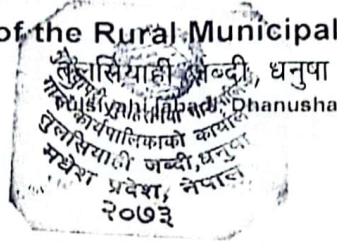 of the Rural Municipal
तुलसियाही जब्दी, धनुषा
Dhanusha
गाउँ कार्यपालिकाको कार्यालय
तुलसियाही जब्दी, धनुषा
मधेश प्रदेश, नेपाल
२०७३